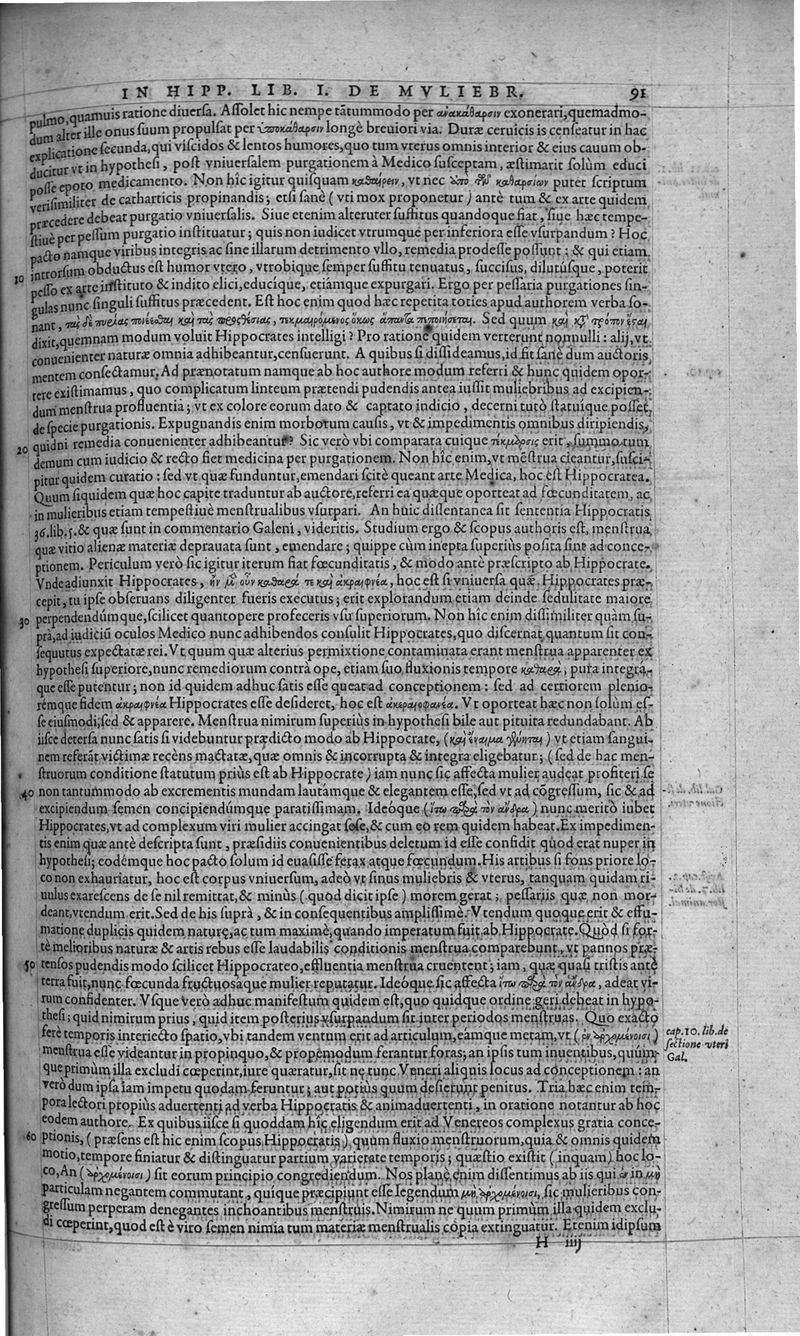 IN HIPP. LIB. I. DE MVLIEBR. 91
pulmo, quamuis ratione diuersa. Assolet hic nempe tātummodo per ἀνακάθαρσιν exonerari, quemadmo-
dum alter ille onus suum propulsat per ὑποκάθαρσιν longè breuiori via. Duræ ceruicis is censeatur in hac
explicatione secunda, qui viscidos & lentos humores, quo tum vterus omnis interior & eius cauum ob-
ducitur vt in hypothesi, post vniuersalem purgationem à Medico susceptam, æstimarit solùm educi
posse epoto medicamento. Non hîc igitur quisquam καθαίρειν, vt nec ὑπὸ τῶν καθαρσίων putet scriptum
verisimiliter de catharticis propinandis; etsi sanè (vti mox proponetur) antè tum & ex arte quidem
præcedere debeat purgatio vniuersalis. Siue etenim alteruter suffitus quandoque fiat, siue hæc tempe-
stiuè per pessum purgatio instituatur; quis non iudicet vtrumque per inferiora esse vsurpandum? Hoc
pacto namque viribus integris ac sine illarum detrimento vllo, remedia prodesse possunt; & qui etiam
10 introrsum obductus est humor vtero, vtrobique semper suffitu tenuatus, succisus, dilutúsque, poterit
pesso ex arte instituto & indito elici, educíque, etiámque expurgari. Ergo per pessaria purgationes sin-
gulas nunc singuli suffitus præcedent. Est hoc enim quod hæc repetita toties apud authorem verba so-
nant, τὰς δὲ πυρίας ποιέεσθαι καὶ τὰς προσθέσιας, τεκμαιρόμενος ὅκως ἅπαντα ποιήσεται. Sed quum καὶ τρόπον
dixit, quemnam modum voluit Hippocrates intelligi? Pro ratione quidem verterunt nonnulli: alij, vt
conuenienter naturæ omnia adhibeantur, censuerunt. A quibus si dissideamus, id fit sanè dum auctoris
mentem consectamur. Ad prænotatum namque ab hoc authore modum referri & hunc quidem opor-
tere existimamus, quo complicatum linteum prætendi pudendis antea iussit muliebribus ad excipien-
dum menstrua profluentia; vt ex colore eorum dato & captato indicio, decerni tutò statuíque posset,
de specie purgationis. Expugnandis enim morborum causis, vt & impedimentis omnibus diripiendis,
20 quidni remedia conuenienter adhibeantur? Sic verò vbi comparata cuique τέκμαρσις erit, summo tum
demum cum iudicio & recto fiet medicina per purgationem. Non hîc enim, vt mēstrua cieantur, susci-
pitur quidem curatio: sed vt quæ funduntur, emendari scitè queant arte Medica, hoc est Hippocratea.
Quum siquidem quæ hoc capite traduntur ab auctore, referri ea quæque oporteat ad fœcunditatem, ac
in mulieribus etiam tempestiuè menstrualibus vsurpari. An huic dissentanea sit sententia Hippocratis
36. lib. 5. & quæ sunt in commentario Galeni, videritis. Studium ergo & scopus authoris est, menstrua
quæ vitio alienæ materiæ deprauata sunt, emendare; quippe cùm inepta superiùs posita sint ad conce-
ptionem. Periculum verò sic igitur iterum fiat fœcunditatis, & modo antè præscripto ab Hippocrate.
Vnde adiunxit Hippocrates, ἢν μὲν οὖν καθαρά τε καὶ ἀκραιφνέα, hoc est si vniuersa quæ Hippocrates præ-
cepit, tu ipse obseruans diligenter fueris executus; erit explorandum etiam deinde sedulitate maiore
30 perpendendúmque, scilicet quantopere profeceris vsu superiorum. Non hîc enim dissimiliter quàm su-
prà, ad iudiciū oculos Medico nunc adhibendos consulit Hippocrates, quo discernat quantum sit con-
sequutus expectatæ rei. Vt quum quæ alterius permixtione contaminata erant menstrua apparenter ex
hypothesi superiore, nunc remediorum contrà ope, etiam suo fluxionis tempore καθαρά; pura integrá-
que esse putentur; non id quidem adhuc satis esse queat ad conceptionem: sed ad certiorem plenio-
rémque fidem ἀκραιφνέα Hippocrates esse desideret, hoc est ἀκεραιοφανέα. Vt oporteat hæc non solùm es-
se eiusmodi; sed & apparere. Menstrua nimirum superiùs in hypothesi bile aut pituita redundabant. Ab
iisce detersa nunc satis si videbuntur prædicto modo ab Hippocrate, (καὶ ἔναιμα γένηται) vt etiam sangui-
nem referāt victimæ recèns mactatæ, quæ omnis & incorrupta & integra eligebatur; (sed de hac men-
struorum conditione statutum priùs est ab Hippocrate) iam nunc sic affecta mulier audeat profiteri se
40 non tantummodo ab excrementis mundam lautámque & elegantem esse, sed vt ad cōgressum, sic & ad
excipiendum semen concipiendúmque paratissimam. Ideóque (ἴτω παρὰ τὸν ἄνδρα) nunc meritò iubet
Hippocrates, vt ad complexum viri mulier accingat sese, & cum eo rem quidem habeat. Ex impedimen-
tis enim quæ antè descripta sunt, præsidiis conuenientibus deletum id esse confidit quod erat nuper in
hypothesi; codémque hoc pacto solum id euasisse ferax atque fœcundum. His artibus si fons priore lo-
co non exhauriatur, hoc est corpus vniuersum, adeò vt sinus muliebris & vterus, tanquam quidam ri-
uulus exarescens de se nil remittat, & minùs (quod dicit ipse) morem gerat; pessariis quæ non mor-
deant, vtendum erit. Sed de his suprà, & in consequentibus amplissimè. Vtendum quoque erit & effu-
matione duplicis quidem naturę, ac tum maximè, quando imperatum fuit ab Hippocrate. Quòd si for-
tè melioribus naturæ & artis rebus esse laudabilis conditionis menstrua comparebunt, vt pannos præ-
50 tensos pudendis modo scilicet Hippocrateo, effluentia menstrua cruentent; iam, quæ quasi tristis antè
terra fuit, nunc fœcunda fructuosaque mulier reputatur. Ideóque sic affecta ἴτω παρὰ τὸν ἄνδρα, adeat vi-
rum confidenter. Vsque verò adhuc manifestum quidem est, quo quidque ordine geri debeat in hypo-
thesi: quid nimirum prius, quid item posterius vsurpandum sit inter periodos menstruas. Quo exacto
ferè temporis interiecto spatio, vbi tandem ventum erit ad articulum, eámque metam, vt (ἀρχομένοισι)
menstrua esse videantur in propinquo, & propemodum ferantur foras; an ipsis tum ineuntibus, quúm-
que primùm illa excludi cœperint, iure quæratur, sit ne tunc Veneri aliquis locus ad conceptionem: an
verò dum ipsa iam impetu quodam feruntur; aut potiùs quum desierunt penitus. Tria hæc enim tem-
pora lectori propiùs aduertenti ad verba Hippocratis & animaduertenti, in oratione notantur ab hoc
eodem authore. Ex quibus iisce si quoddam hîc eligendum erit ad Venereos complexus gratia conce-
60 ptionis, (præsens est hic enim scopus Hippocratis) quum fluxio menstruorum, quia & omnis quidem
motio, tempore finiatur & distinguatur partium varietate temporis; quæstio existit (inquam) hoc lo-
co, An (ἀρχομένοισι) sit eorum principio congrediendum. Nos planè enim dissentimus ab iis qui ἐν in μὴ
particulam negantem commutant, quíque præcipiunt esse legendum μὴ ἀρχομένοισι, sic mulieribus con-
gressum perperam denegantes inchoantibus menstruis. Nimirum ne quum primùm illa quidem exclu-
di cœperint, quod est è viro semen nimia tum materiæ menstrualis copia extinguatur. Etenim idipsum
H iiij
cap. 10. lib. de
sectione vteri
Gal.